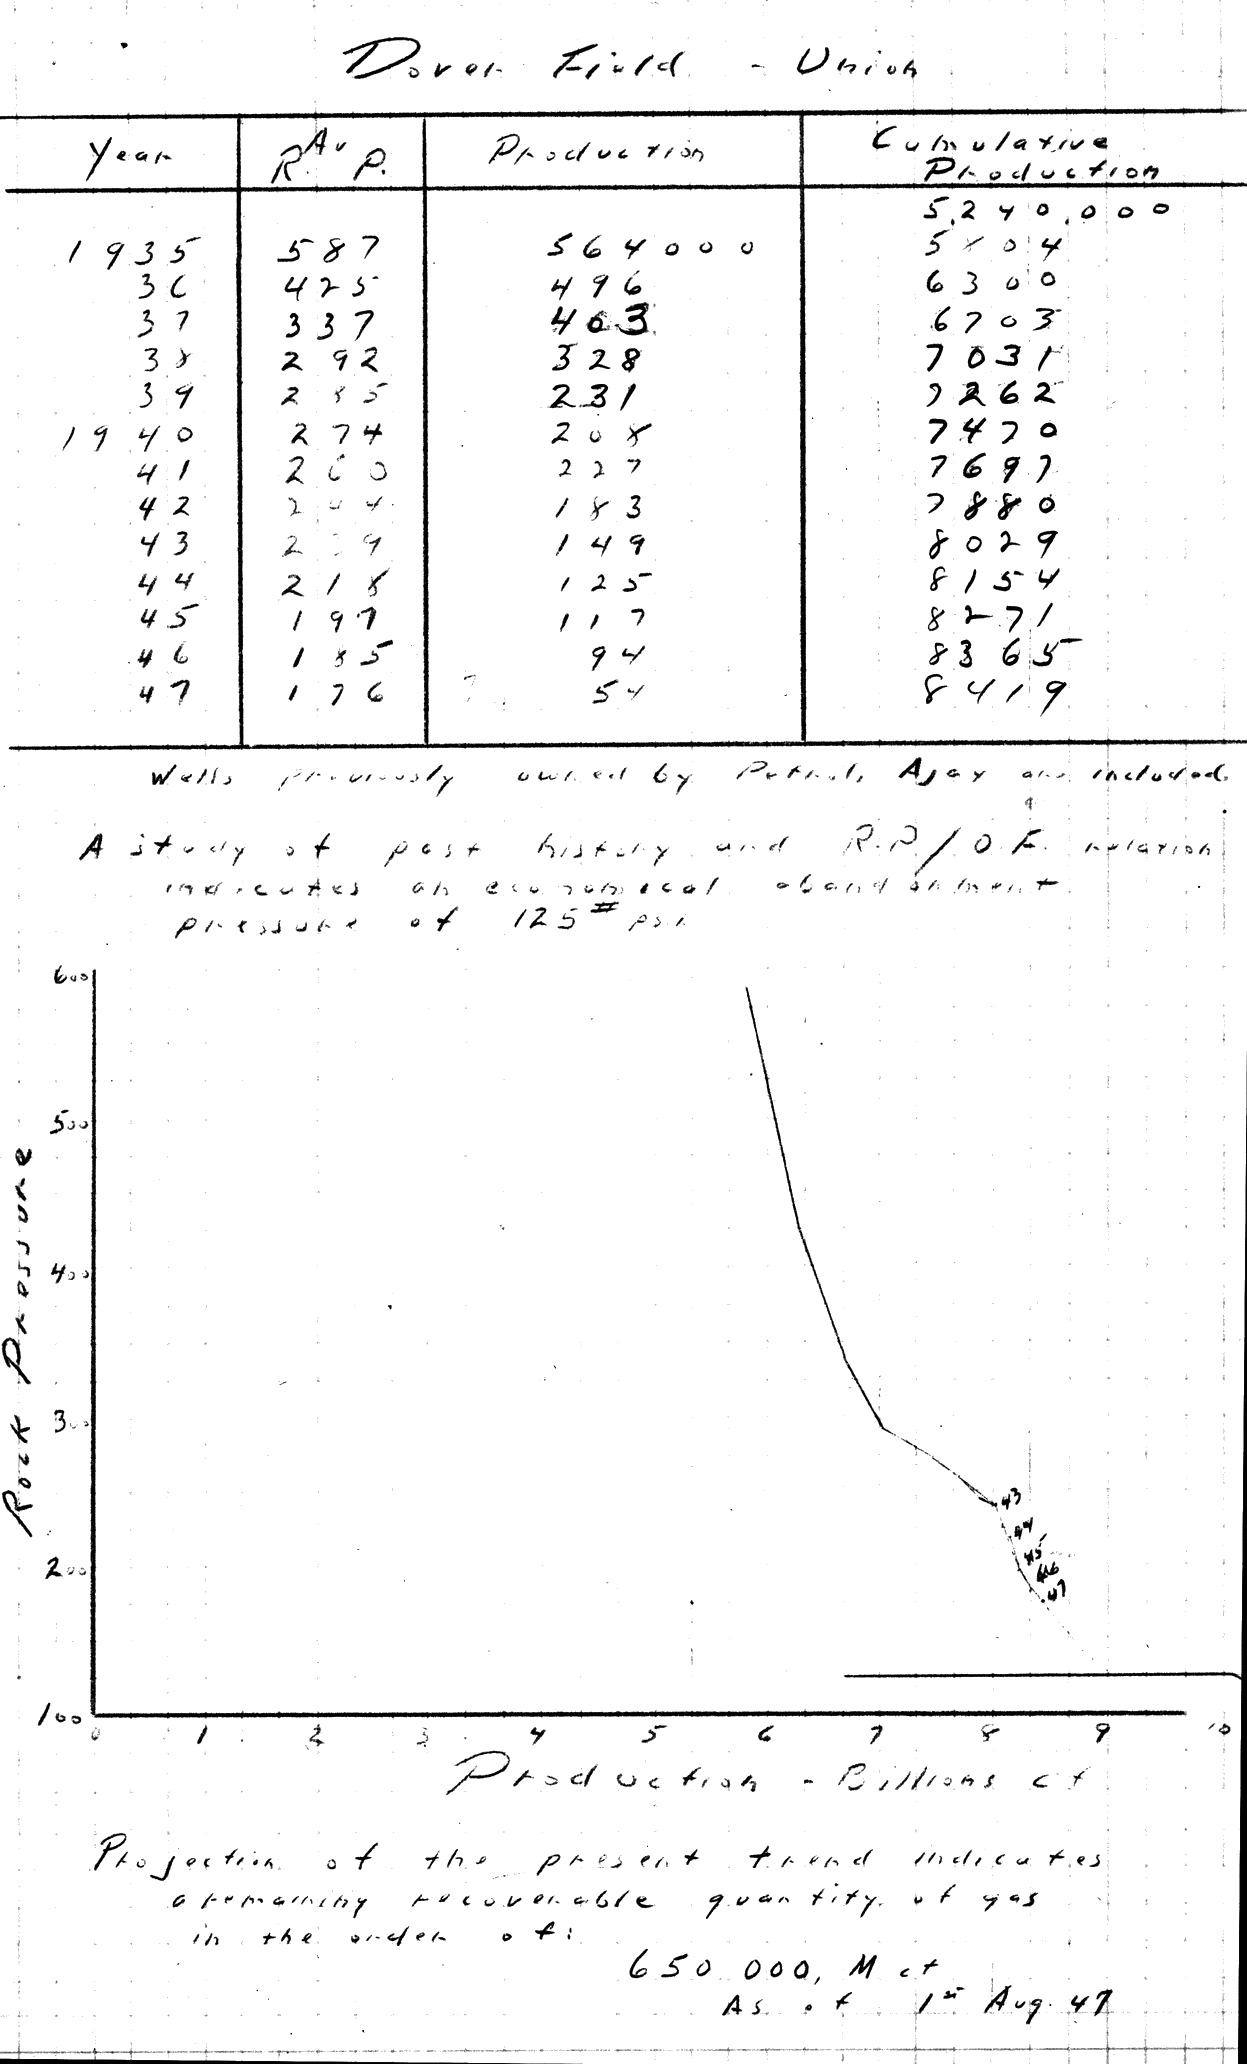 Dover Field - Union
Year R. Av P. Production Cumulative Production
5,240,000
1935 587 564000 5804
36 425 496 6300
37 337 403 6703
38 292 328 7031
39 285 231 7262
1940 274 208 7470
41 260 227 7697
42 183 7880
43 149 8029
44 218 125 8154
45 197 117 8271
46 185 94 8365
47 176 54 8419
Wells previously owned by Petrol, Ajax are included.
A study of past history and R.P./O.F. relation
indicates an economical abandonment
pressure of 125# psi.
600
500
400
300
200
100
Rock Pressure
43
44
45
46
47
0 1 2 3 4 5 6 7 8 9 10
Production - Billions cf
Projection of the present trend indicates
a remaining recoverable quantity of gas
in the order of:
650 000, M cf
As of 1st Aug. 47